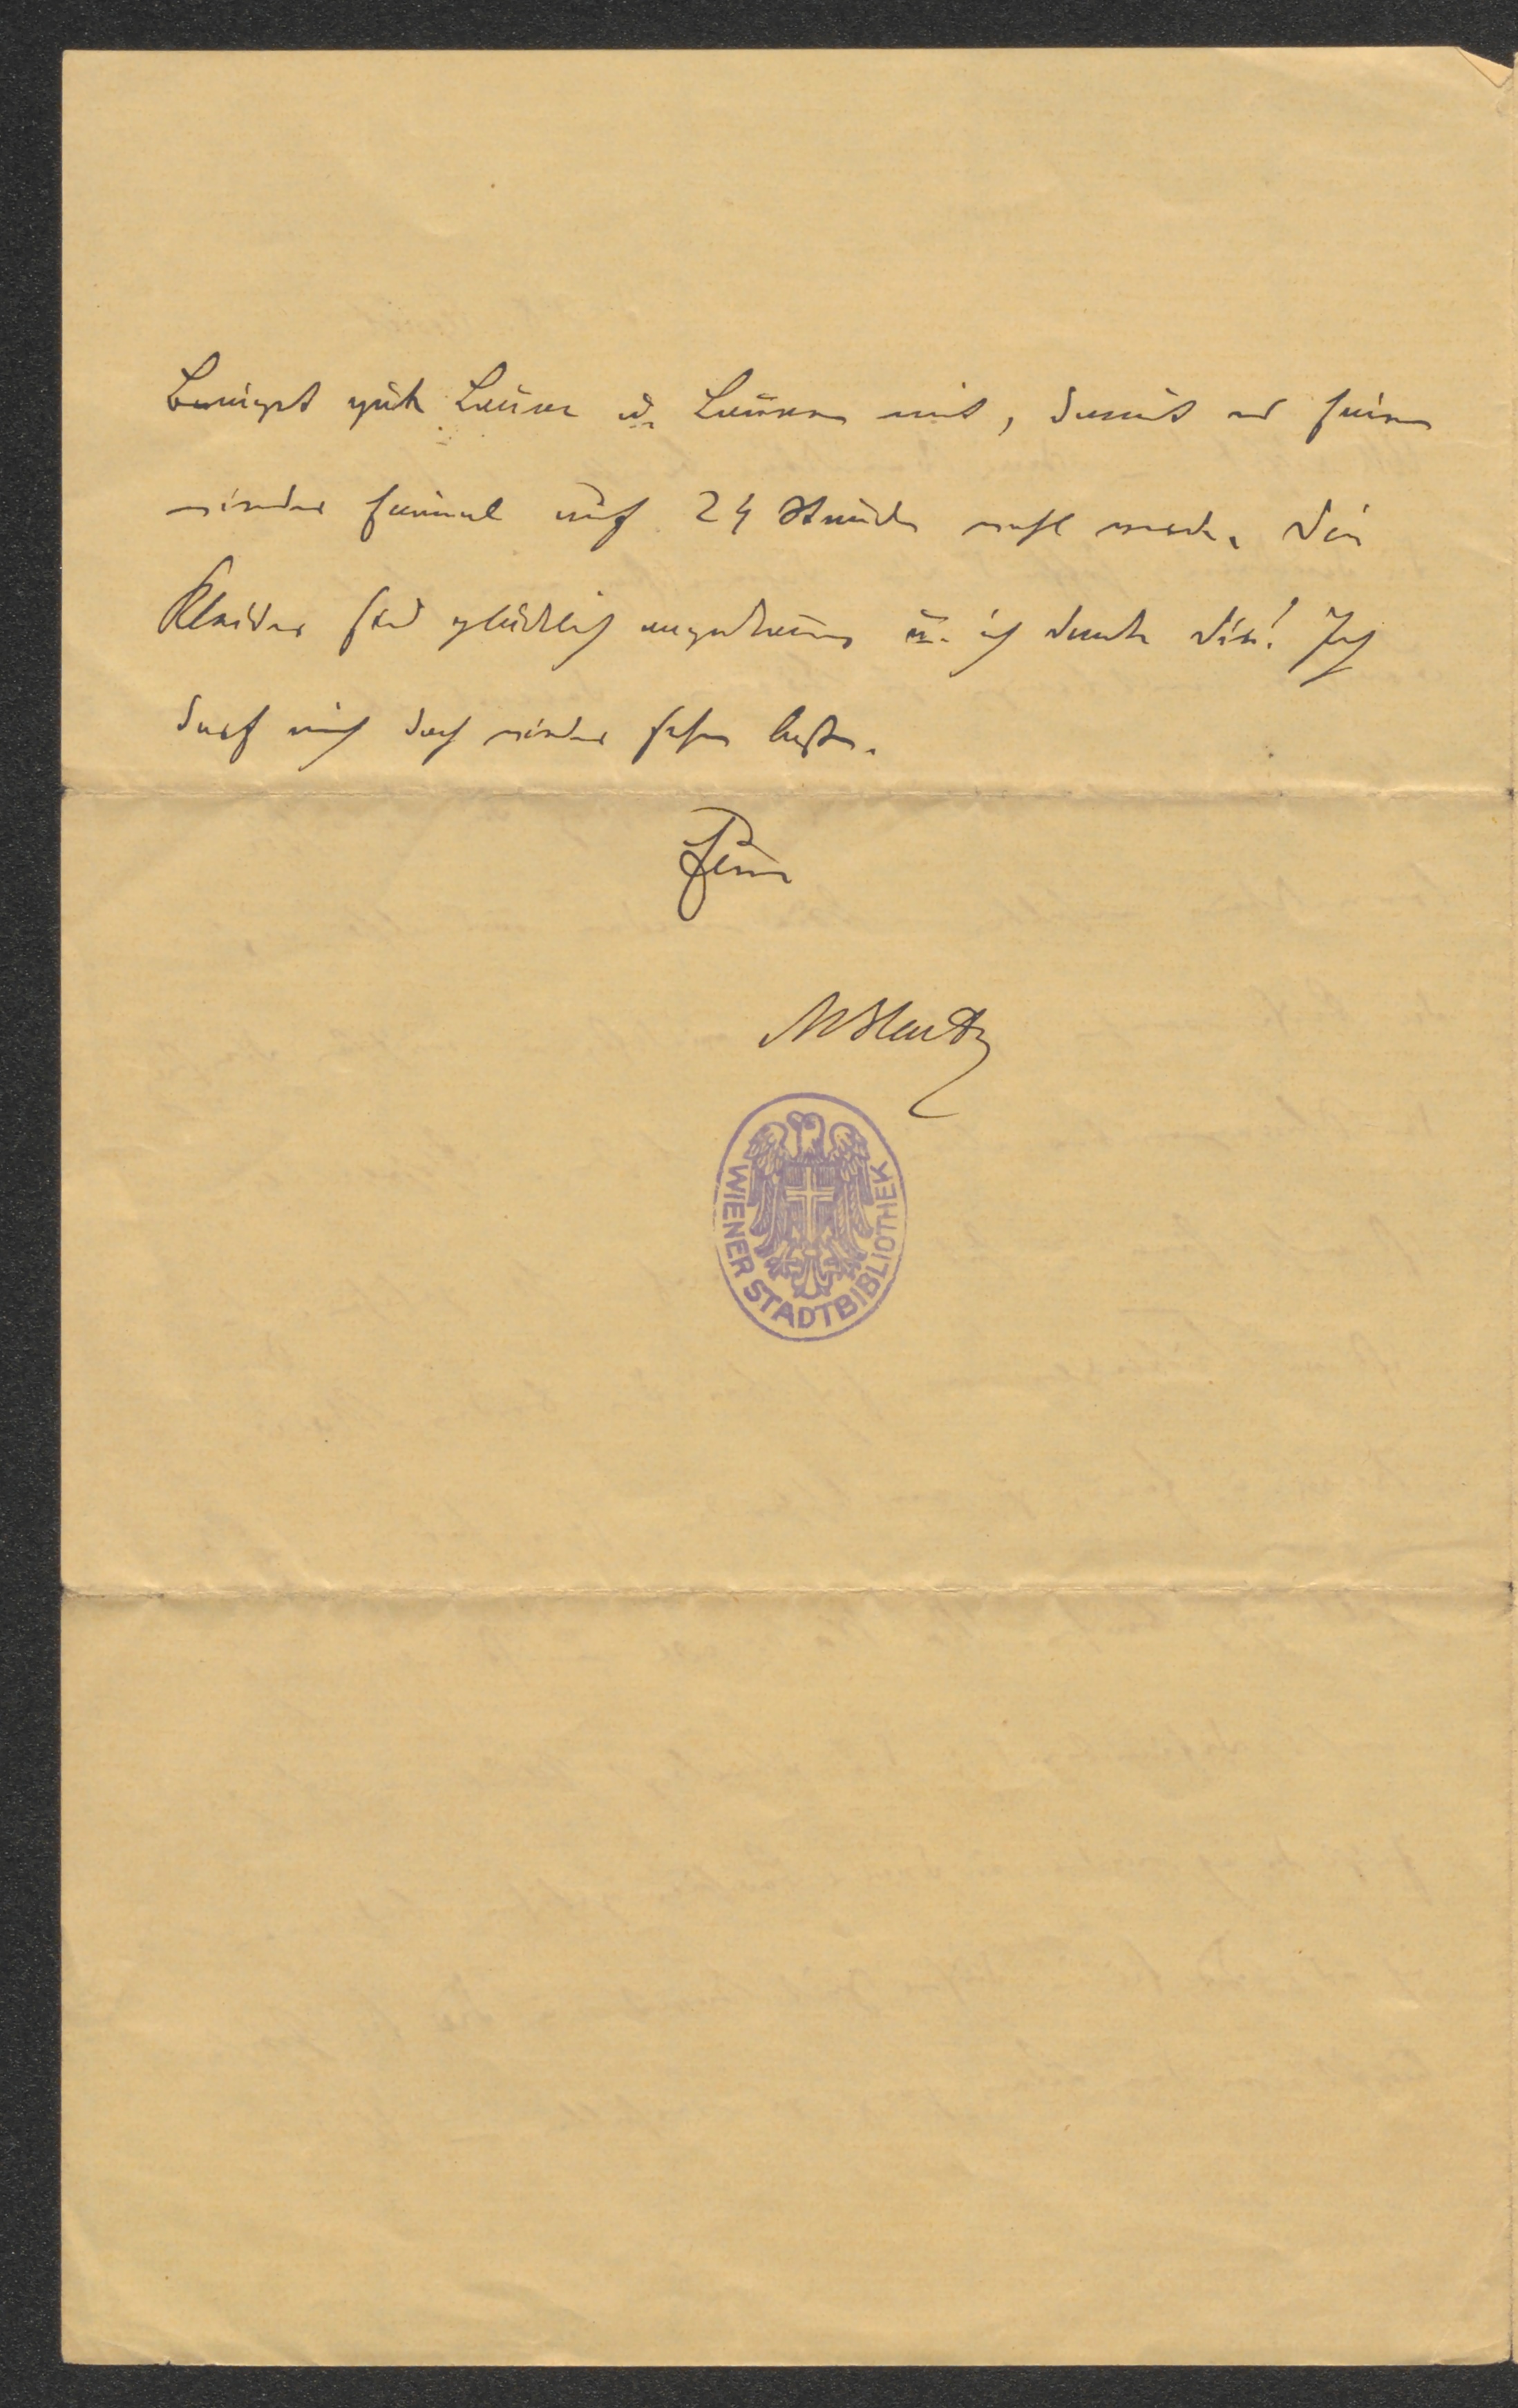 Bringst gute Laune u. Launen mit, damit es hier
wieder einmal auf 24 Stunden wohl werde. Die
Kleider sind glücklich angekommen u. ich danke dir! Ich
darf mich doch wieder sehen lassen.
Dein
WIENER STADTBIBLIOTHEK